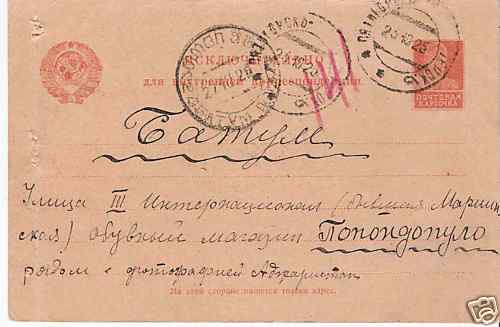 ИСКЛЮЧИТЕЛЬНО
для внутренней корреспонденции
ПОЧТОВАЯ
КАРТОЧКА
23 10 25
БАТУМ
Батум
Улица III Интернационала (бывшая Мариин
ская) обувный магазин Попондопуло
рядом с фотографией Аджаристан
На этой стороне пишется только адрес.